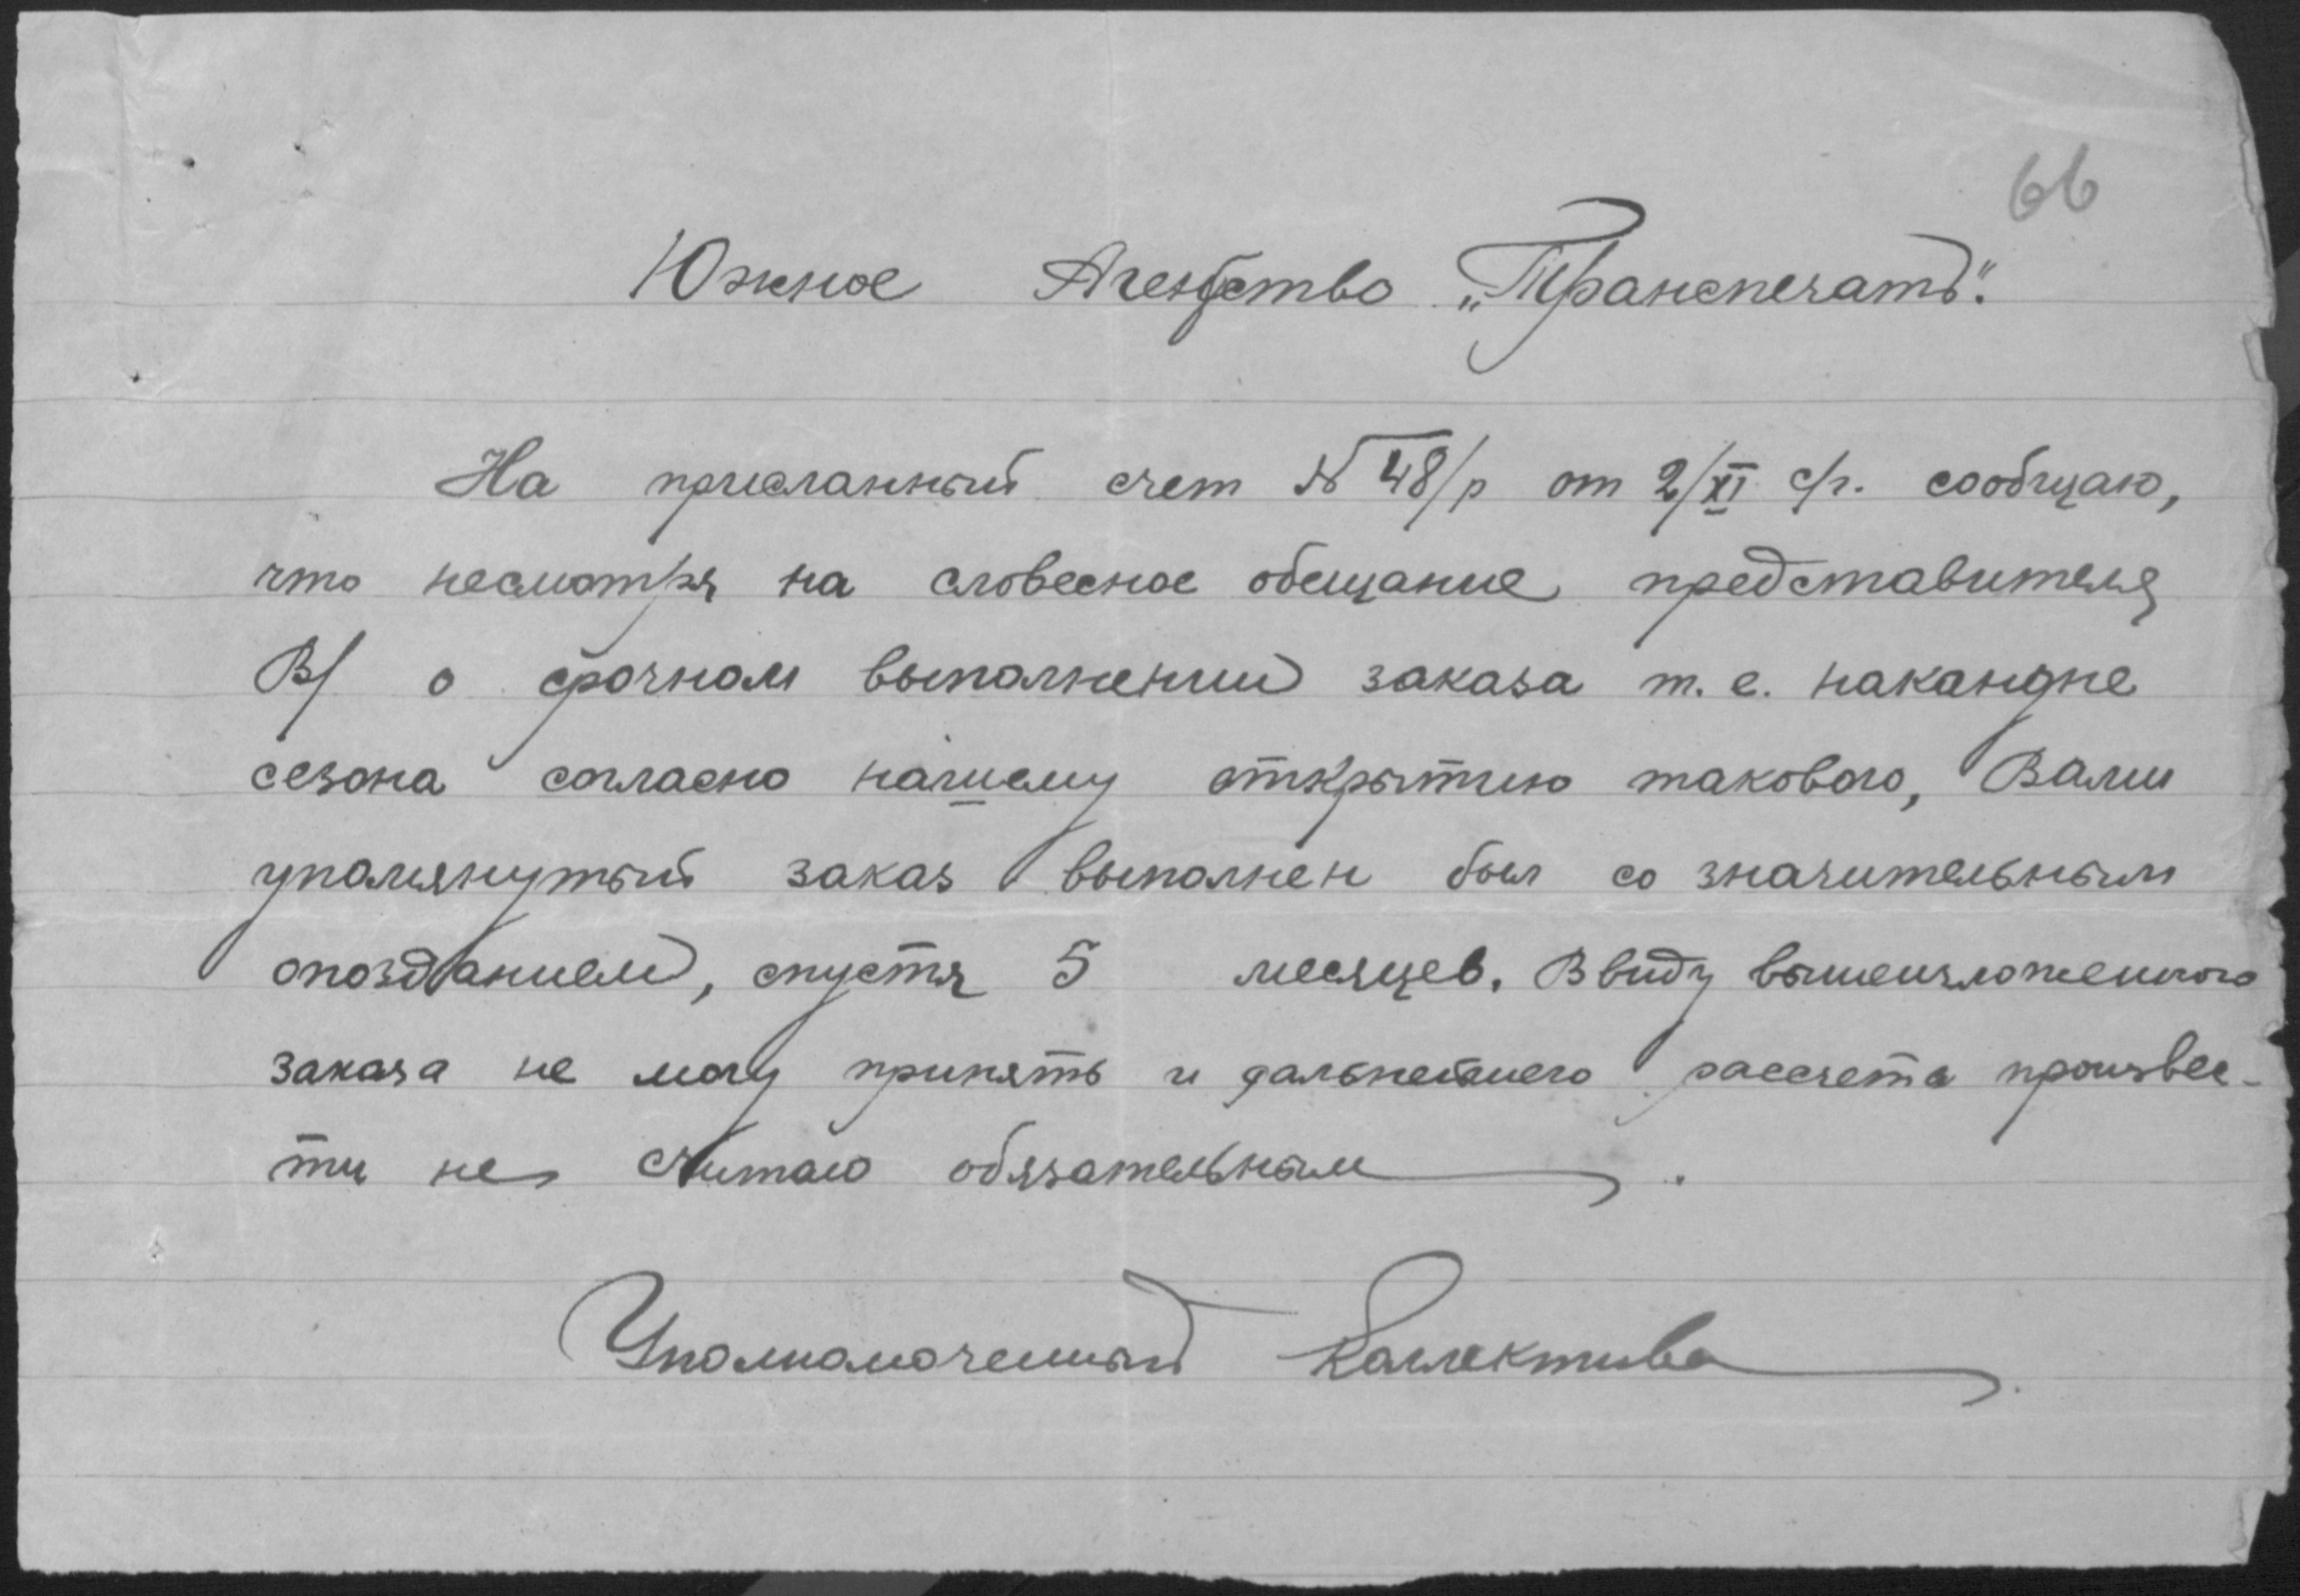 66
Южное Агентство „Транспечать".
На присланный счет № 48/р от 2/XI с/г. сообщаю,
что несмотря на словесное обещание представителя
В/ о срочном выполнении заказа т. е. накандне
сезона согласно нашему открытию такового, Вами
упомянутый заказ выполнен был со значительным
опозданием, спустя 5 месяцев. Ввиду вышеизложенного
заказа не могу принять и дальнейшего рассчета произвес-
ти не считаю обязательным.
Уполномоченный Коллектива